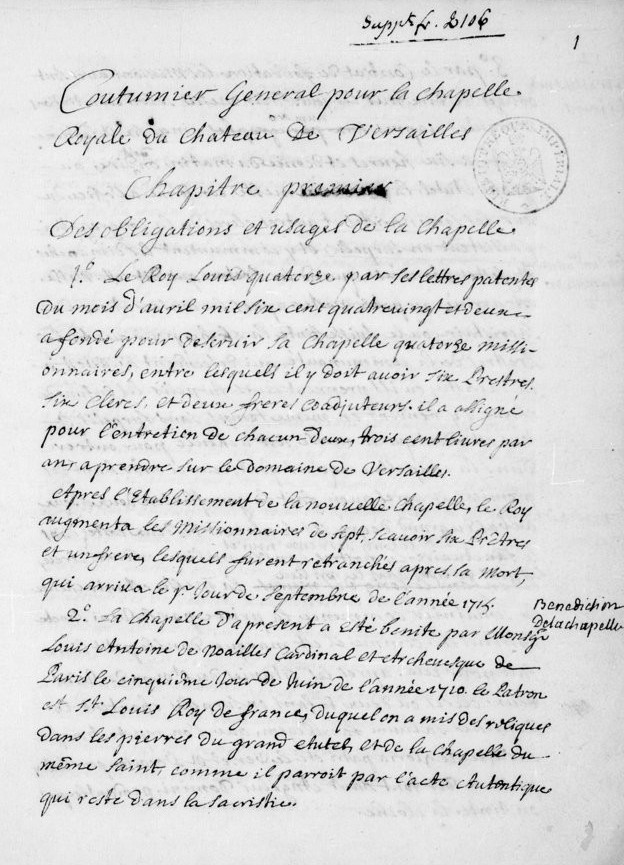 Suppt. fr. 2106
1
Coutumier General pour la chapelle
Royale du Chateau De Versailles
Chapitre premier
Des obligations et usages de la Chapelle
1.º Le Roy Louis quatorze par ses lettres patentes
Du mois d'avril mil six cent quatrevingt et deux
a fondé pour deservir sa Chapelle quatorze missi-
onnaires, entre lesquels il y doit avoir six Prestres,
six clercs, et deux freres coadjuteurs. il a assigné
pour l'entretien de chacun deux, trois cent livres par
an, a prendre sur le Domaine de Versailles.
Apres l'Etablissement de la nouvelle Chapelle, le Roy
augmenta les Missionnaires de sept, scavoir six Prêtres
et un frere, lesquels furent retranchés apres sa Mort,
qui arriva le 1r. Jour de Septembre de l'année 1715.
Benediction
De la chapelle
2.º La Chapelle d'apresent a Esté benite par Monsgr
Louis Antoine de Noailles Cardinal et Archevesque de
Paris le cinquiéme Jour de Juin de l'année 1710. le Patron
est St. Louis Roy de france, duquel on a mis des reliques
dans les pierres du grand Autel, et de la Chapelle du
même Saint, comme il parroit par l'acte Autentique
qui reste dans la Sacristie.